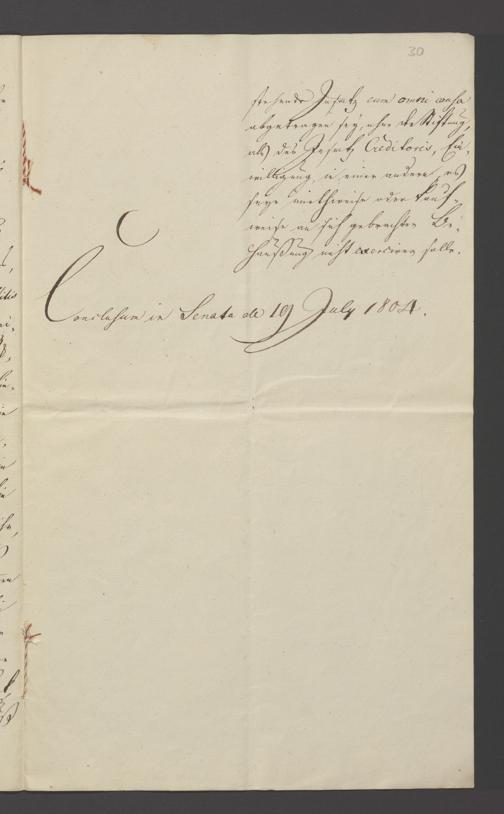 30
stehende Insatz cum omni causa
abgetragen sey, ohne der Stiftung,
als des Insatz Creditoris, Ein-
willigung, in einer andern, es
seye miethweise oder kauf-
weise an sich gebrachten Be-
haußung nicht exerciren solle.
Conclusum in Senatu de 19 July 1804.